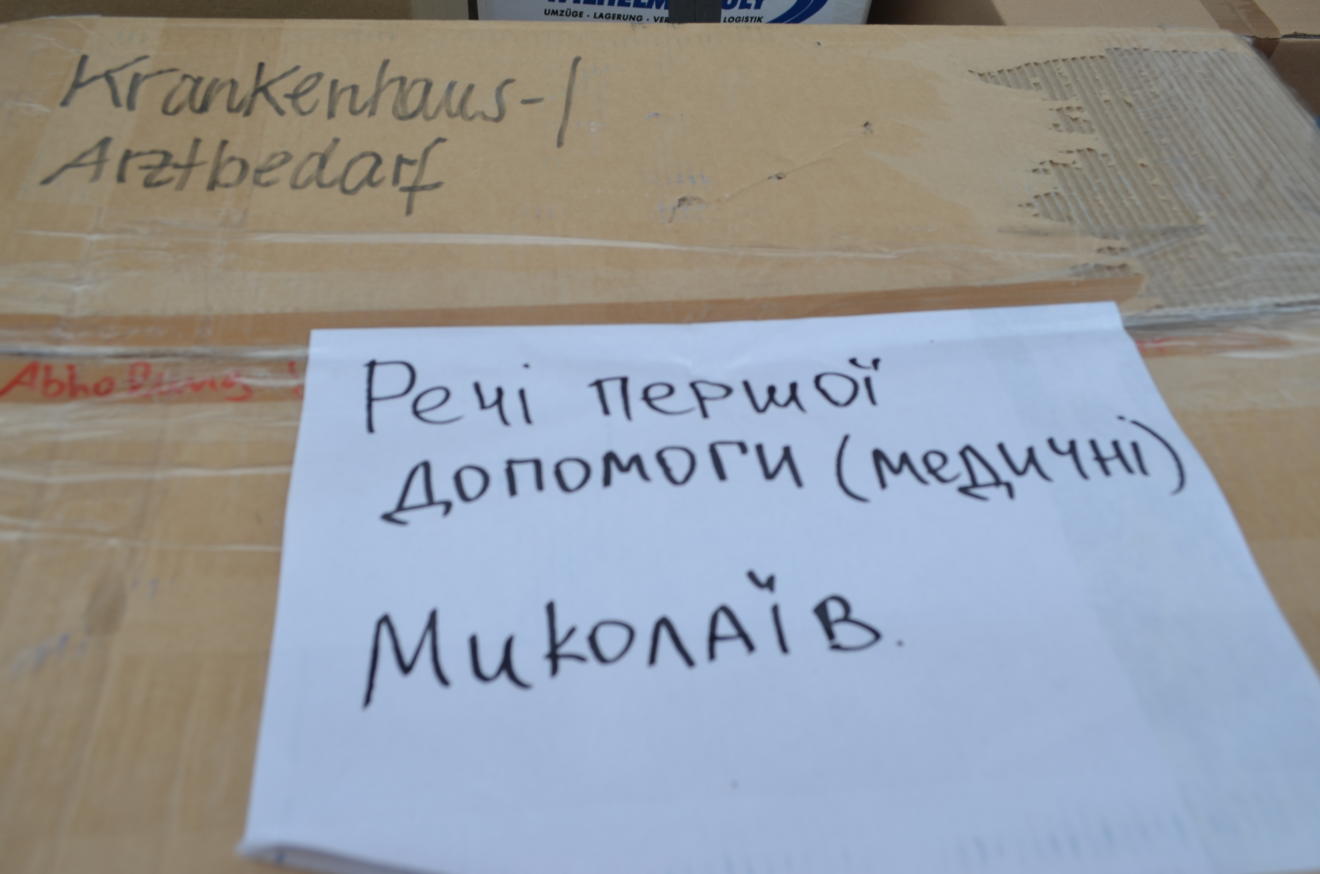 UMZÜGE - LAGERUNG - LOGISTIK
Krankenhaus-/
Arztbedarf
Речі першої
допомоги (медичні)
Миколаїв.